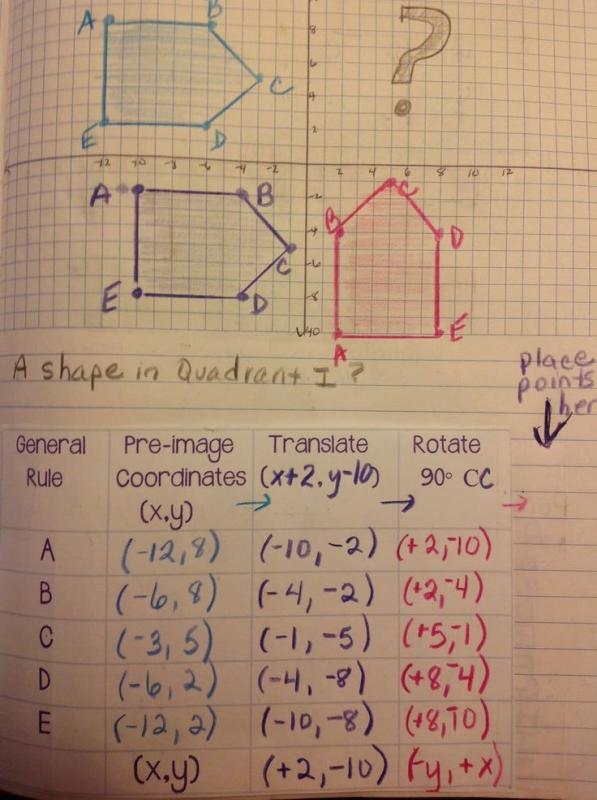 A B
8
?
6
C
4
E D
2
-12 -10 -8 -6 -4 -2 2 4 6 8 10 12
A B -2 C
B -4 D
C
-6
E D -8
-10 E
A
A shape in Quadrant I ?
place
points
her
General Pre-image Translate Rotate
Rule Coordinates (x+2, y-10) 90° CC
(x,y)
A (-12, 8) (-10, -2) (+2,-10)
B (-6, 8) (-4, -2) (+2,-4)
C (-3, 5) (-1, -5) (+5,-1)
D (-6, 2) (-4, -8) (+8,-4)
E (-12, 2) (-10, -8) (+8,-10)
(x,y) (+2, -10) (-y, +x)